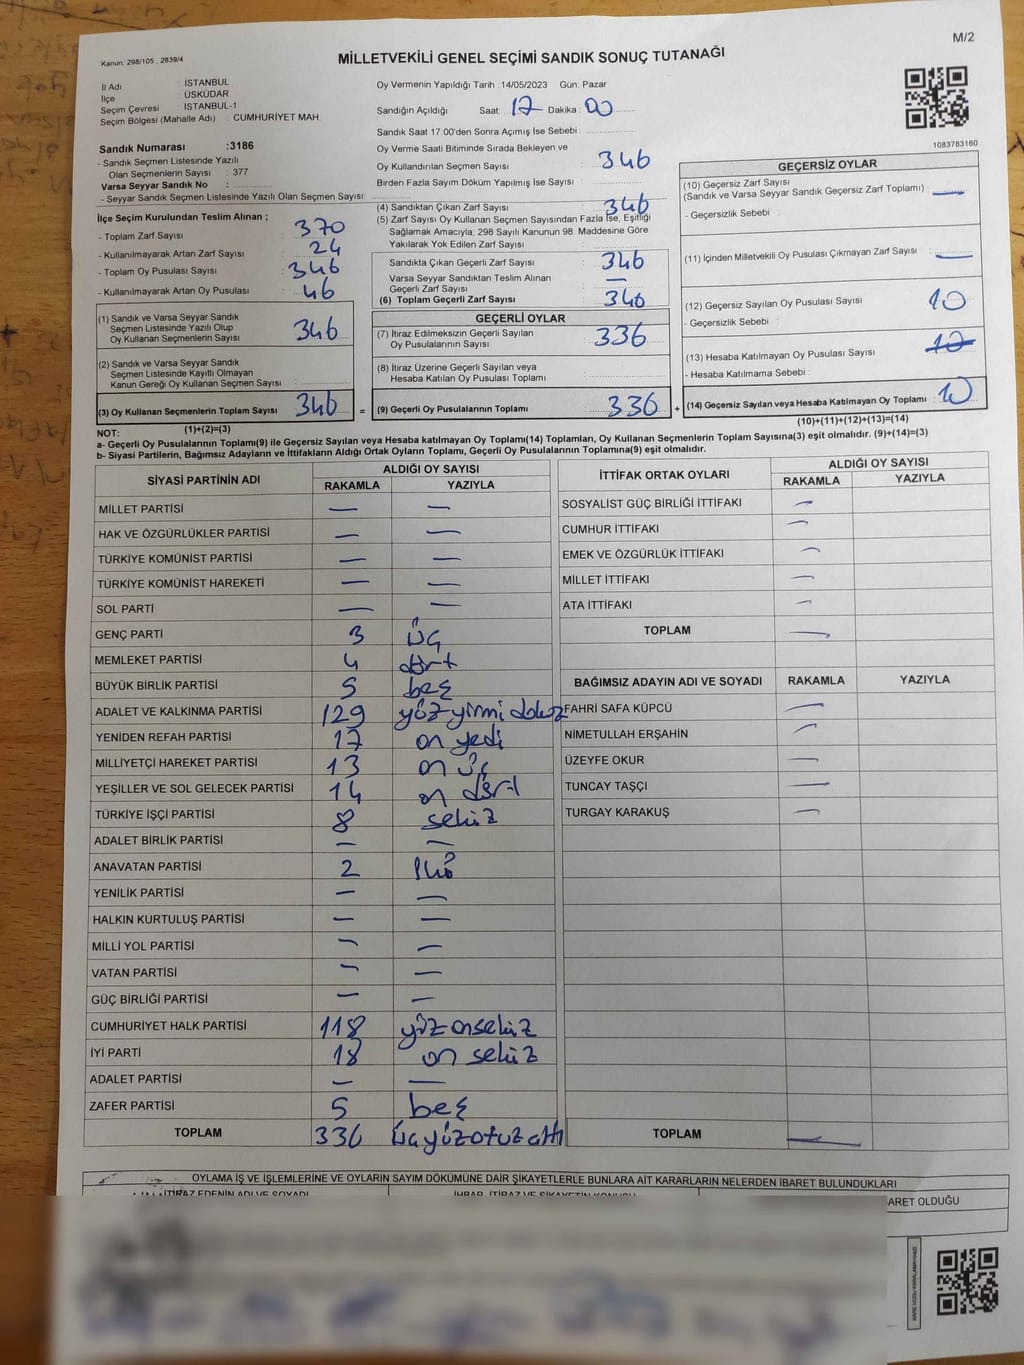 M/2
Kanun: 298/105 , 2839/4
MİLLETVEKİLİ GENEL SEÇİMİ SANDIK SONUÇ TUTANAĞI
İl Adı : İSTANBUL
İlçe : ÜSKÜDAR
Seçim Çevresi : İSTANBUL-1
Seçim Bölgesi (Mahalle Adı) : CUMHURİYET MAH.
Sandık Numarası :3186
- Sandık Seçmen Listesinde Yazılı
Olan Seçmenlerin Sayısı : 377
Varsa Seyyar Sandık No :
- Seyyar Sandık Seçmen Listesinde Yazılı Olan Seçmen Sayısı:
İlçe Seçim Kurulundan Teslim Alınan ;
- Toplam Zarf Sayısı : 370
- Kullanılmayarak Artan Zarf Sayısı : 24
- Toplam Oy Pusulası Sayısı : 346
- Kullanılmayarak Artan Oy Pusulası : 46
(1) Sandık ve Varsa Seyyar Sandık
Seçmen Listesinde Yazılı Olup
Oy Kullanan Seçmenlerin Sayısı : 346
(2) Sandık ve Varsa Seyyar Sandık
Seçmen Listesinde Kayıtlı Olmayan
Kanun Gereği Oy Kullanan Seçmen Sayısı :
(3) Oy Kullanan Seçmenlerin Toplam Sayısı : 346
Oy Vermenin Yapıldığı Tarih : 14/05/2023 Gün: Pazar
Sandığın Açıldığı Saat: 17 Dakika : 00
Sandık Saat 17.00'den Sonra Açımış İse Sebebi :
Oy Verme Saati Bitiminde Sırada Bekleyen ve
Oy Kullandırılan Seçmen Sayısı : 346
Birden Fazla Sayım Döküm Yapılmış İse Sayısı :
(4) Sandıktan Çıkan Zarf Sayısı : 346
(5) Zarf Sayısı Oy Kullanan Seçmen Sayısından Fazla İse, Eşitliği
Sağlamak Amacıyla, 298 Sayılı Kanunun 98. Maddesine Göre
Yakılarak Yok Edilen Zarf Sayısı :
Sandıkta Çıkan Geçerli Zarf Sayısı : 346
Varsa Seyyar Sandıktan Teslim Alınan
Geçerli Zarf Sayısı : —
(6) Toplam Geçerli Zarf Sayısı : 346
GEÇERLİ OYLAR
(7) İtiraz Edilmeksizin Geçerli Sayılan
Oy Pusulalarının Sayısı : 336
(8) İtiraz Üzerine Geçerli Sayılan veya
Hesaba Katılan Oy Pusulası Toplamı :
= (9) Geçerli Oy Pusulalarının Toplamı : 336 +
1083783160
GEÇERSİZ OYLAR
(10) Geçersiz Zarf Sayısı
(Sandık ve Varsa Seyyar Sandık Geçersiz Zarf Toplamı) : —
- Geçersizlik Sebebi :
(11) İçinden Milletvekili Oy Pusulası Çıkmayan Zarf Sayısı : —
(12) Geçersiz Sayılan Oy Pusulası Sayısı : 10
- Geçersizlik Sebebi :
(13) Hesaba Katılmayan Oy Pusulası Sayısı : 10
- Hesaba Katılmama Sebebi :
(14) Geçersiz Sayılan veya Hesaba Katılmayan Oy Toplamı : 10
NOT: (1)+(2)=(3) (10)+(11)+(12)+(13)=(14)
a- Geçerli Oy Pusulalarının Toplamı(9) ile Geçersiz Sayılan veya Hesaba katılmayan Oy Toplamı(14) Toplamları, Oy Kullanan Seçmenlerin Toplam Sayısına(3) eşit olmalıdır. (9)+(14)=(3)
b- Siyasi Partilerin, Bağımsız Adayların ve İttifakların Aldığı Ortak Oyların Toplamı, Geçerli Oy Pusulalarının Toplamına(9) eşit olmalıdır.
SİYASİ PARTİNİN ADI ALDIĞI OY SAYISI
RAKAMLA YAZIYLA
MİLLET PARTİSİ — —
HAK VE ÖZGÜRLÜKLER PARTİSİ — —
TÜRKİYE KOMÜNİST PARTİSİ — —
TÜRKİYE KOMÜNİST HAREKETİ — —
SOL PARTİ — —
GENÇ PARTİ 3 üç
MEMLEKET PARTİSİ 4 dört
BÜYÜK BİRLİK PARTİSİ 5 beş
ADALET VE KALKINMA PARTİSİ 129 yüz yirmi dokuz
YENİDEN REFAH PARTİSİ 17 on yedi
MİLLİYETÇİ HAREKET PARTİSİ 13 on üç
YEŞİLLER VE SOL GELECEK PARTİSİ 14 on dört
TÜRKİYE İŞÇİ PARTİSİ 8 sekiz
ADALET BİRLİK PARTİSİ — —
ANAVATAN PARTİSİ 2 iki
YENİLİK PARTİSİ — —
HALKIN KURTULUŞ PARTİSİ — —
MİLLİ YOL PARTİSİ — —
VATAN PARTİSİ — —
GÜÇ BİRLİĞİ PARTİSİ — —
CUMHURİYET HALK PARTİSİ 118 yüz onsekiz
İYİ PARTİ 18 on sekiz
ADALET PARTİSİ — —
ZAFER PARTİSİ 5 beş
TOPLAM 336 üçyüzotuzaltı
İTTİFAK ORTAK OYLARI ALDIĞI OY SAYISI
RAKAMLA YAZIYLA
SOSYALİST GÜÇ BİRLİĞİ İTTİFAKI —
CUMHUR İTTİFAKI —
EMEK VE ÖZGÜRLÜK İTTİFAKI —
MİLLET İTTİFAKI —
ATA İTTİFAKI —
TOPLAM —
BAĞIMSIZ ADAYIN ADI VE SOYADI RAKAMLA YAZIYLA
FAHRİ SAFA KÜPCÜ —
NİMETULLAH ERŞAHİN —
ÜZEYFE OKUR —
TUNCAY TAŞÇI —
TURGAY KARAKUŞ —
TOPLAM —
OYLAMA İŞ VE İŞLEMLERİNE VE OYLARIN SAYIM DÖKÜMÜNE DAİR ŞİKAYETLERLE BUNLARA AİT KARARLARIN NELERDEN İBARET BULUNDUKLARI
İTİRAZ EDENİN ADI VE SOYADI İHBAR, İTİRAZ VE ŞİKAYETİN KONUSU ARET OLDUĞU